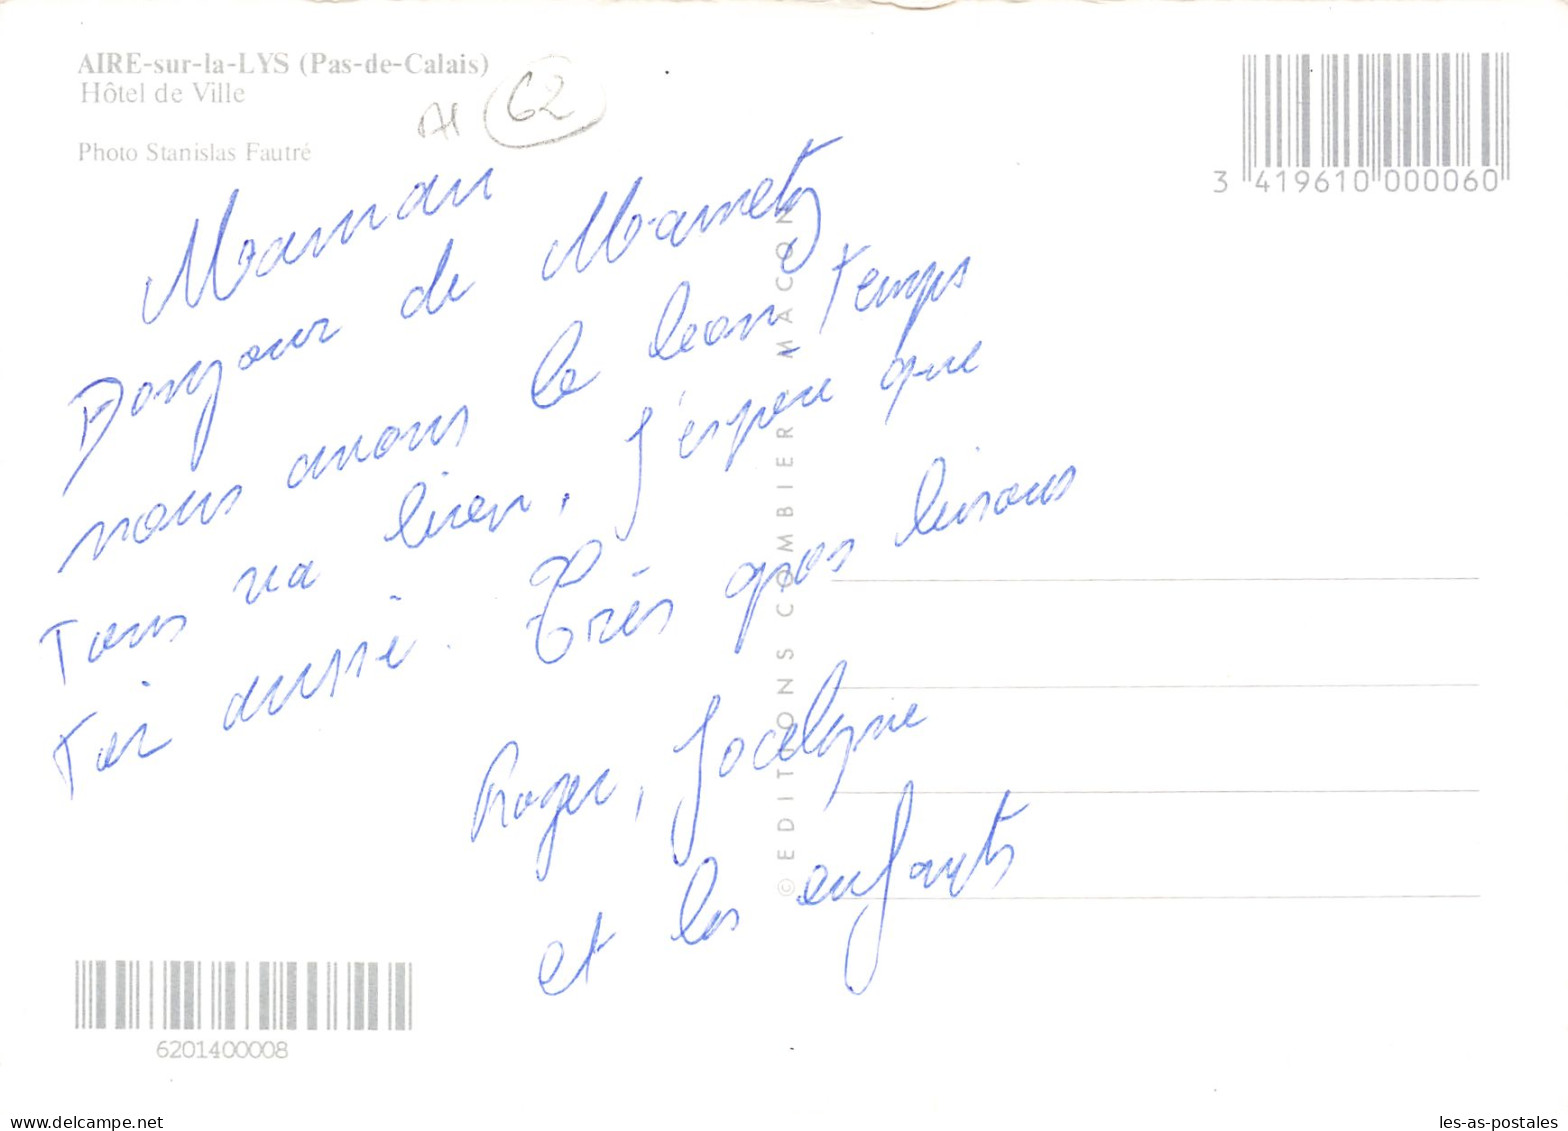 AIRE-sur-la-LYS (Pas-de-Calais)
Hôtel de Ville
Photo Stanislas Fautré
A1 62
3 419610 000060
Maman
Bonjour de Mametz
nous avons le beau temps
Tous va bien, J'espère que
Toi aussi. Très gros bisous
Roger, Jocelyne
et les enfants
© EDITIONS COMBIER MACON
6201400008
www.delcampe.net
les-as-postales